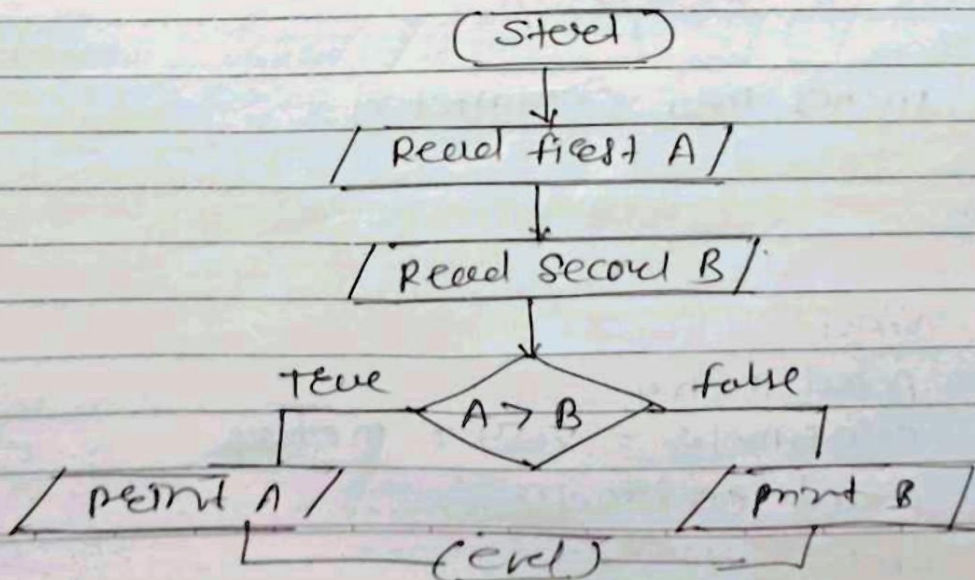 Start
Read first A
Read Second B
True false
A > B
print A print B
(end)